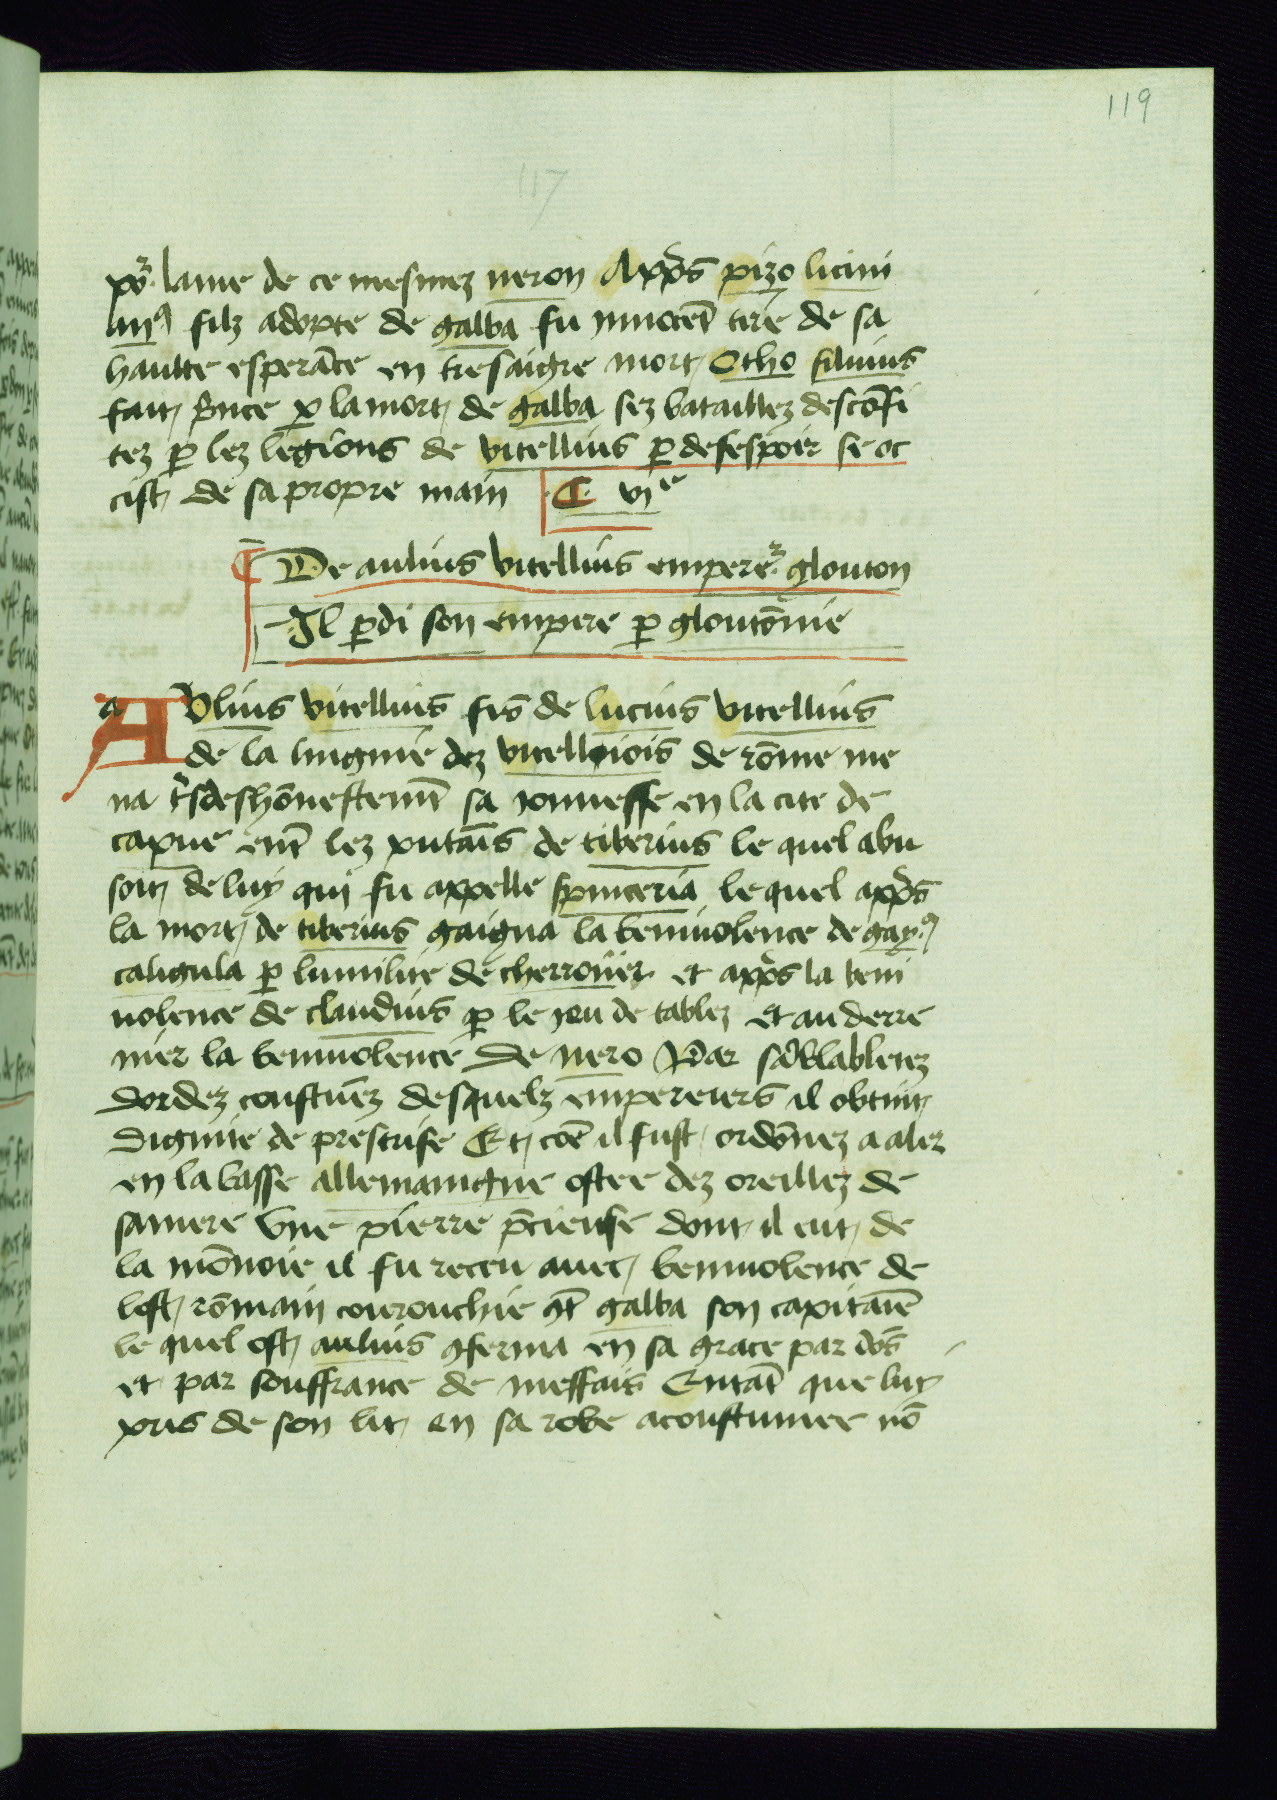 119
117
po᷑ lame de ce mesmez neron Appͬs pizo licini
niꝰ filz adopte de galba fu innocēt tire de sa
haulte esperāce en tresaigre mort Otho siluius
fait pͥnce ꝑ la mort de galba sez bataillez descōfi
tez ꝑ lez legions de vitellius ꝑ desespoir se oc
cist de sa propre main C viͤ
De aulius vitellius empere᷑ glouton
Il ꝑdi son empere ꝑ gloutōnie
AVlius vitellius fis de lucius vitellius
de la lingnie dez vitelliois de rōme me
na tͬsdeshōnestemēt sa jonnesse en la cite de
capue ent̄ lez putaīs de tiberius le quel abu
soit de luy qui fu appelle spinceria le quel appͬs
la mort de tiberius gaigna la beniuolence de gayꝰ
caligula ꝑ lumilite de cherrouier et appͬs la beni
uolence de claudius ꝑ le jeu de tablez et au derre
nier la beniuolence de nero Par sāblabletez
dordez coustūez desquelz empereurs il obtint
dignite de prestrise Et cōe il fust ordōnez a aler
en la basse allemaingne ostee dez oreillez de
sa mere vne pierre pͬcieuse dont il eut de
la mōnoie il fu receu auec beniuolence de
lost rōmain courouchie ꝯt̄ galba son capitaīe
le quel ost aulius ꝯferma en sa grace par dōs
et par souffrance de meffais Entāt que luy
pris de son lit en sa robe acoustumee nō